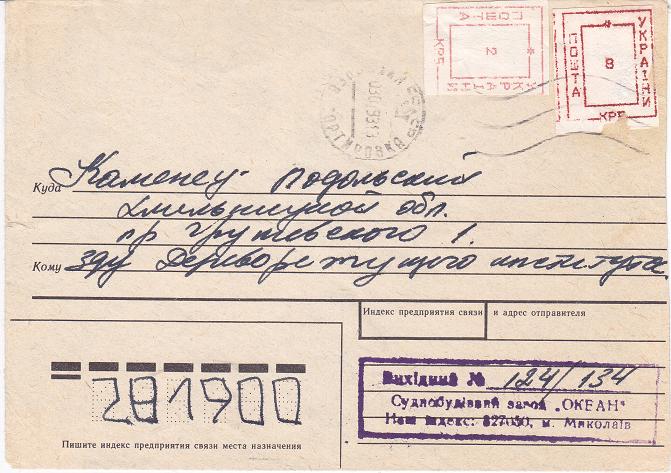 ПОШТА
УКРАЇНИ
КРБ
* 2
ПОШТА
УКРАЇНИ
КРБ
* 8
Куда Каменец-Подольский
Хмельницкой обл.
пр Грушевского 1.
Кому института.
Индекс предприятия связи и адрес отправителя
281900
Пишите индекс предприятия связи места назначения
Вихідний № 124/134
Суднобудівний завод „ОКЕАН"
Наш індекс: 327050, м. Миколаїв